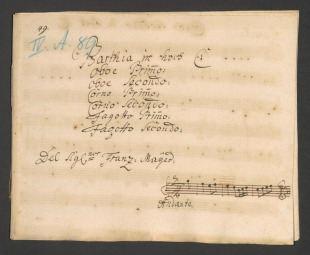 49.
IV. A. 89
Parthia in
Oboe Primo:
Oboe Secondo:
Corno Primo:
Corno Secondo:
Fagotto Primo:
Fagotto Secondo:
Del Sig: Franz: Mayer.
Andante.